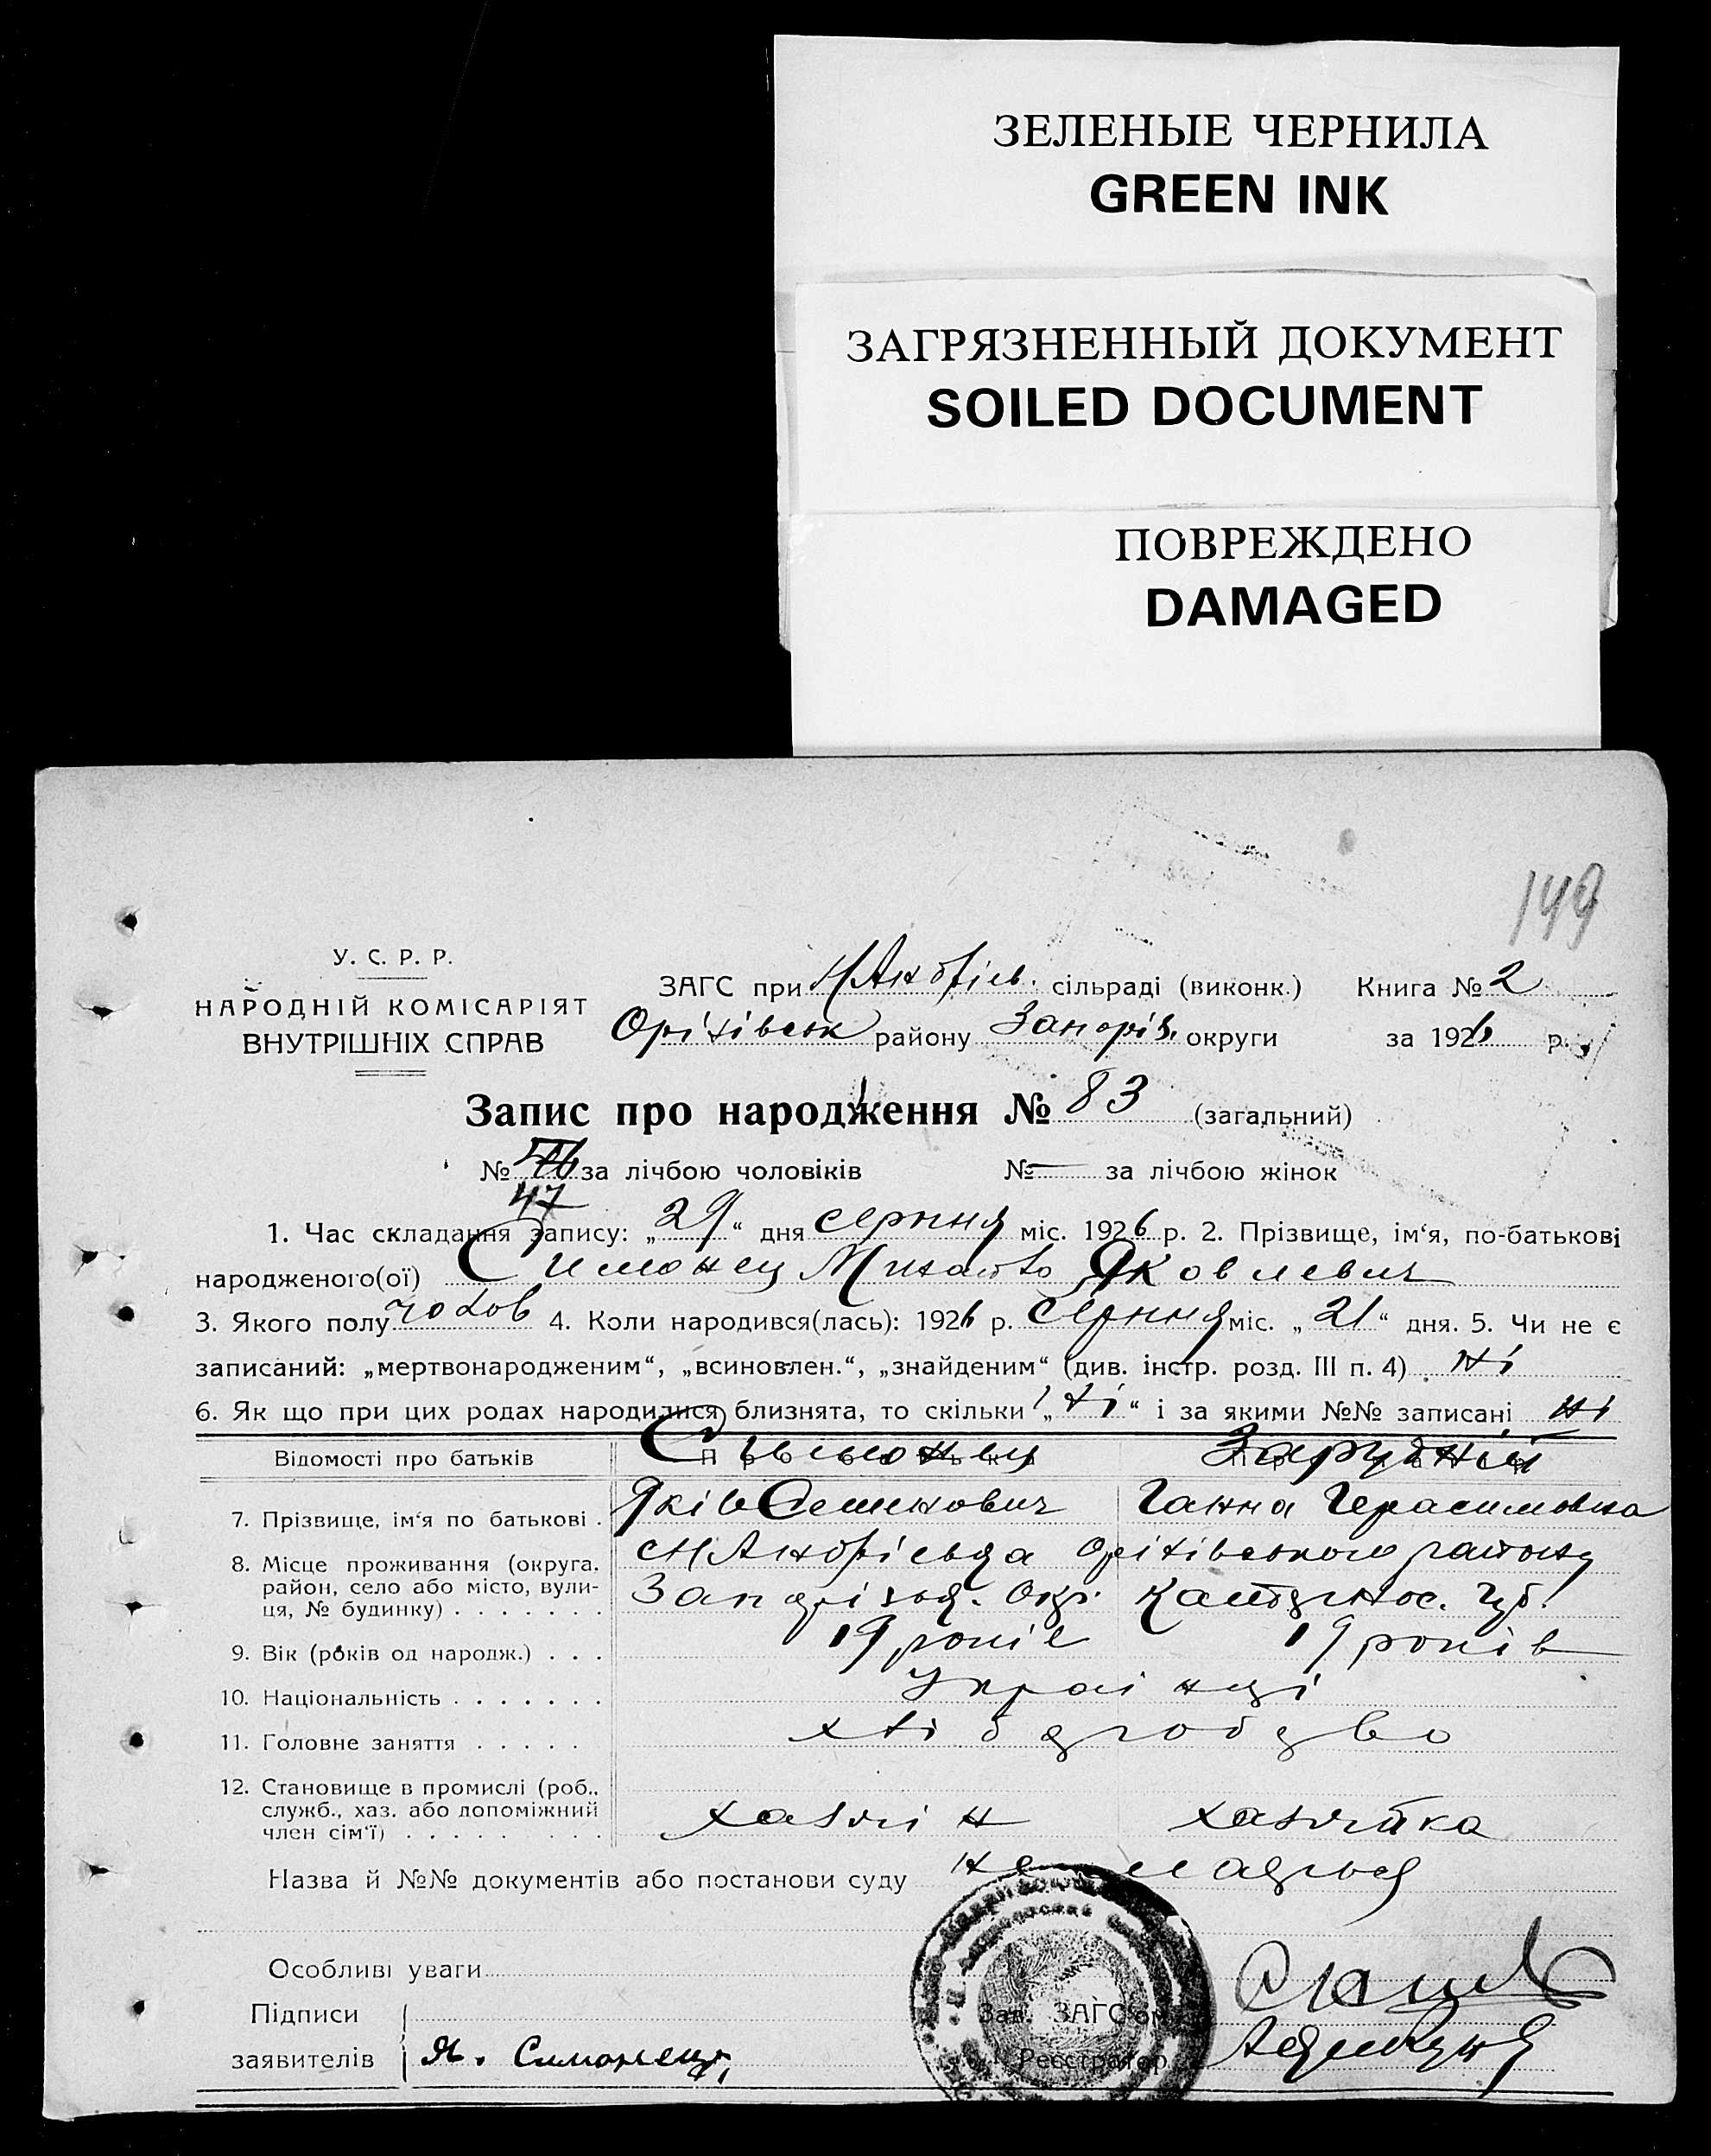 ЗЕЛЕНЫЕ ЧЕРНИЛА
GREEN INK
ЗАГРЯЗНЕННЫЙ ДОКУМЕНТ
SOILED DOCUMENT
ПОВРЕЖДЕНО
DAMAGED
149
У. С. Р. Р.
НАРОДНІЙ КОМІСАРІЯТ
ВНУТРІШНІХ СПРАВ
ЗАГС при сільраді (виконк.) Книга № 2
Оріхівськ району Запоріз. округи за 1926 р.
Запис про народження № 83 (загальний)
№ за лічбою чоловіків № — за лічбою жінок
47
1. Час складання запису: „29“ дня серпня міс. 1926 р. 2. Прізвище, ім‘я, по-батькові
народженого(ої) Симонец Михайло Яковлевич
3. Якого полу чолов 4. Коли народився(лась): 1926 р. серпня міс. „21“ дня. 5. Чи не є
записаний: „мертвонародженим“, „всиновлен.“, „знайденим“ (див. інстр. розд. III п. 4) ні
6. Як що при цих родах народилися близнята, то скільки „ні“ і за якими №№ записані ні
Відомості про батьків Про батька Про матір
7. Прізвище, ім‘я по батькові . Яків Семенович Ганна Герасимовна
8. Місце проживання (округа, Оріхівського району
район, село або місто, вули-
ця, № будинку) . . . . . . .
9. Вік (років од народж.) . . . 19 років 19 років
10. Національність . . . . . . . Українці
11. Головне заняття . . . . . хліборобство
12. Становище в промислі (роб.,
служб., хаз. або допоміжний хазяїн хазяйка
член сім‘ї) . . . . . . . . .
Назва й №№ документів або постанови суду
Особливі уваги
Підписи Зав. ЗАГС‘ом
заявителів Я. Симонец, Реєстратор